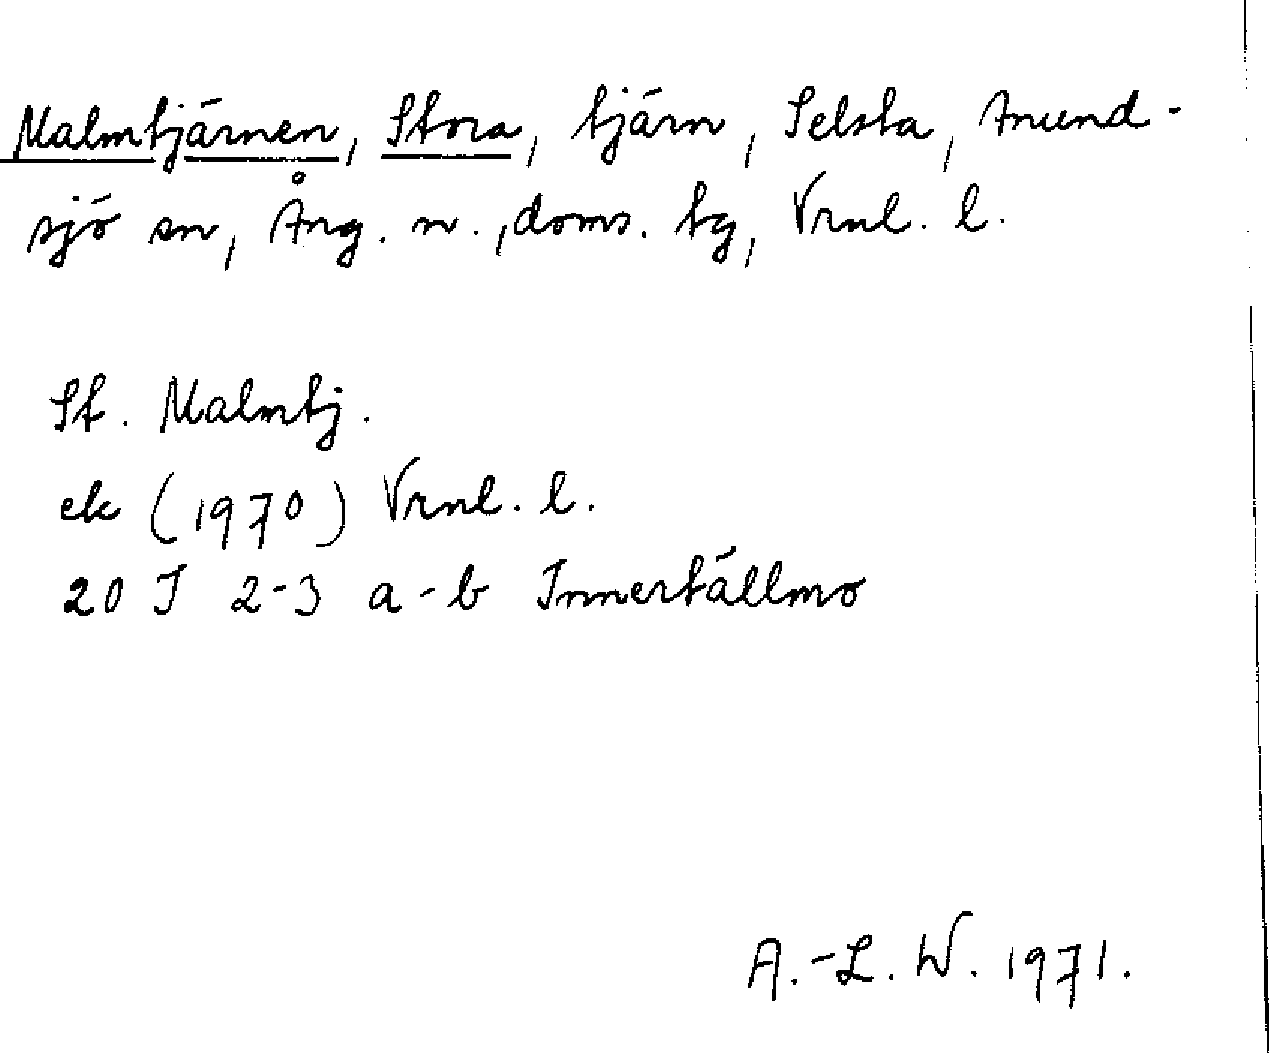 Malmtjärnen, Stora, tjärn, Selsta, Anund-
sjö sn, Ång. n., doms. tg, Vrnl. l.
St. Malmtj.
ek (1970) Vrnl. l.
20 J 2-3 a-b Innertällmo
A.-L. W. 1971.